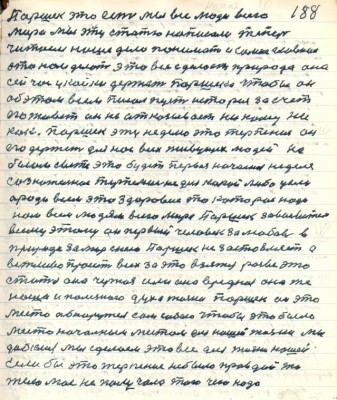 Паршек это есть мы все люди всего 188
мира мы эту статью написали теперь
читаем наше дело понимать и самое главное
это нам делать это все сделает природа она
сейчас и как ни держит Паршека чтобы он
об этом всем писал пусть история за счет
его живет он не отказывает никому ни
кого. Паршек эту неделю это терпения он
его держит для нас всех живущих людей на
белом свете это будет первая начальная неделя
сознательное терпение не для какой либо цели
а ради всей это здоровия это которое надо
нам всем людям всего мира Паршек занимается
всему этому он первый человек за любовь в
природе за мир его Паршек не заставляет а
вежливо просит всех за это взяться разве это
стоит она чужая или она вредная она же
наша и полезного духа жизни Паршек он это
место обвинутся сам собою чтобы это было
место начальным местом для нашей жизни мы
добились мы сделаем это все для жизни нашей
Если бы это терпение не было правдой то
тело мое не получало того чего надо